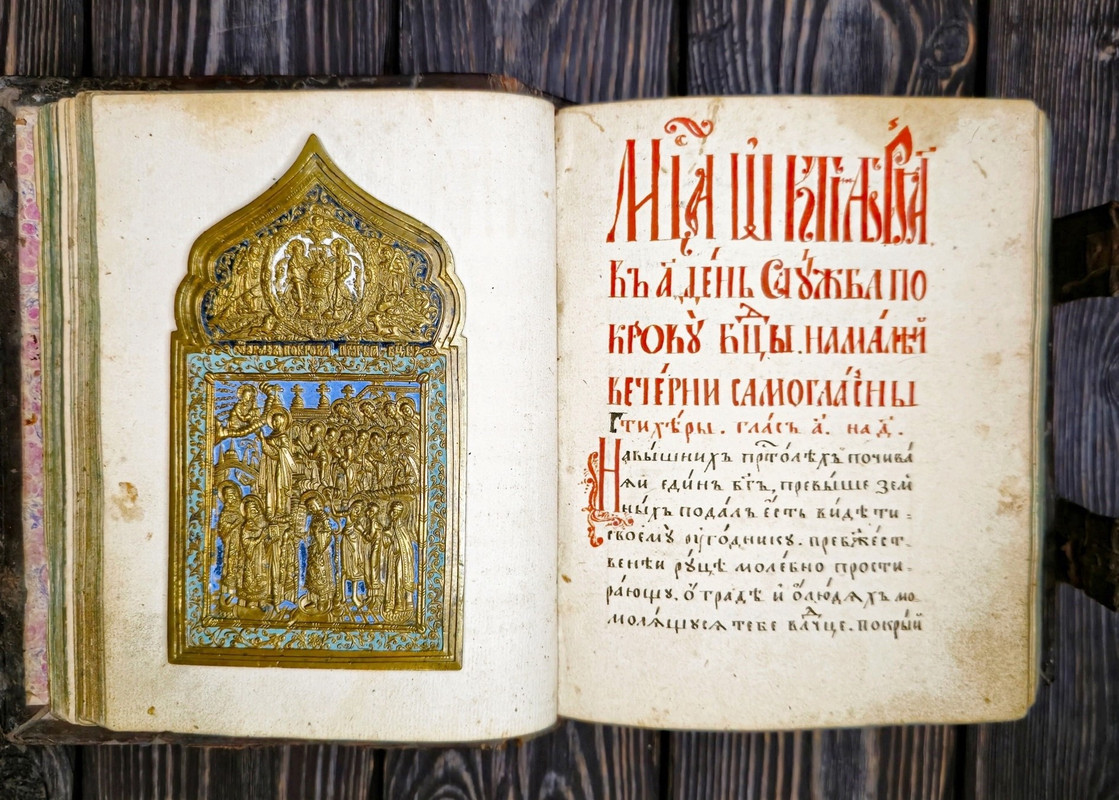 ѻбразъ покрова прест҃ыѧ бцы
Мцⷭ҇а ѡктѧбрѧ̀
въ а҃ де́нь Слу́жба по
кро́ву бцⷣы. на ма́лѣй
вече́рни самогла́сны
Стихѣ́ры. гла́съ а҃. на д҃.
На вы́шнихъ прⷭ҇то́лѣхъ почива́
ѧй еди́нъ бг҃ъ, превы́ше зем
ны́хъ пода́лъ є҆́сть ви́дѣти
своему̀ ᲂу҆го́днику. пребж҃е́ст
венѣи ру́цѣ моле́бно прости
ра́ющу. ѡ҆ гра́дѣ и҆ ѡ҆ лю́дѧхъ мо
молѧ́щусѧ тебе влⷣчце. покры́й